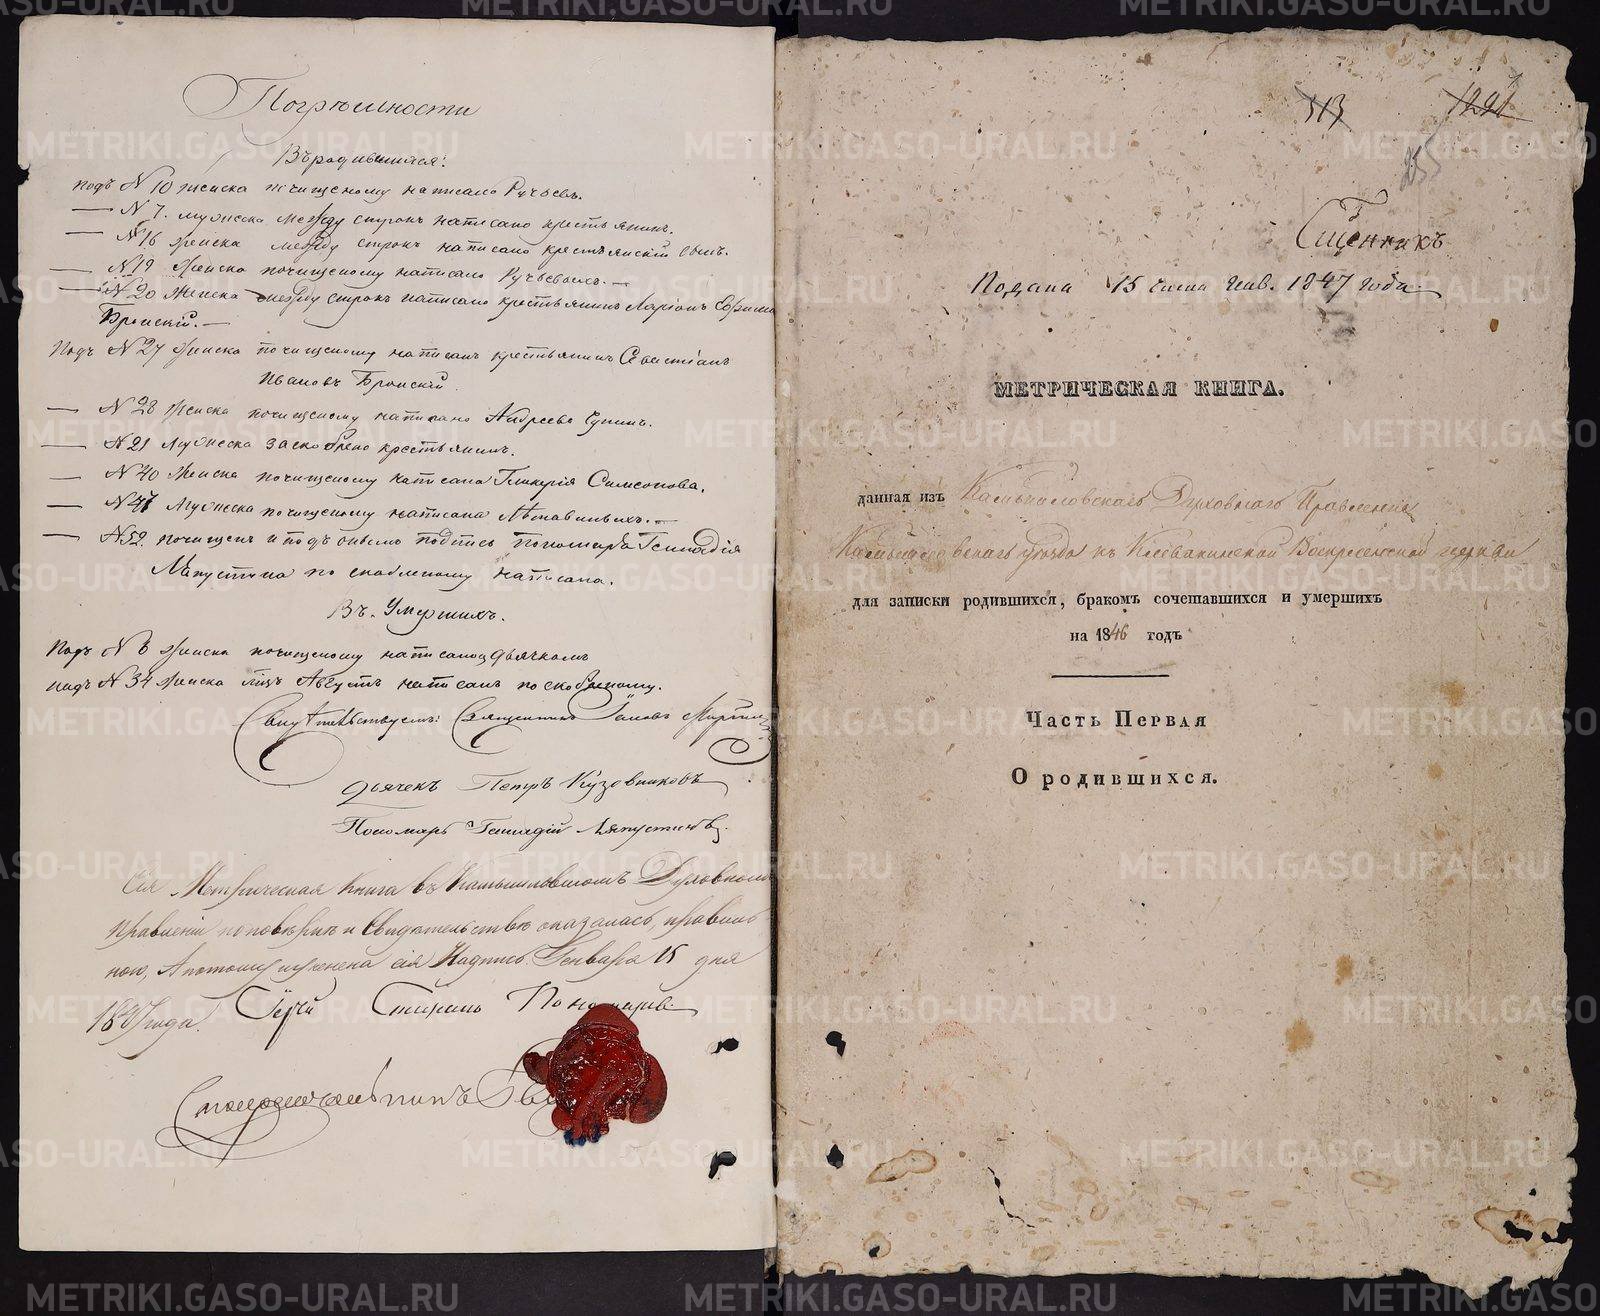 Погрѣшности
Въ родившихся:
подъ N 10 женска почищеному написано Ручьевъ.
— N 7. мужеска между строкъ написано крестьянинъ.
— N 16 женска между строкъ написано крестьянскій сынъ.
— N 19 женска почищеному написано Ручьевыхъ. —
— N 20 женска между строкъ написано крестьянинъ Ларіонъ
Бронскій. —
Подъ N 27 женска почищеному написанъ крестьянинъ Севастіанъ
Ивановъ Бронскій.
— N 28 женска почищеному написано Андреева
— N 21 мужеска заскоблено крестьянинъ.
— N 40 женска почищеному написана Гликерія Симеонова.
— N 47 мужеска почищеному написана
— N 52. почищенъ и подъ онымъ подпись пономаря Геннадія
Ляпустина по скобленому написана.
Въ Умершихъ.
Подъ N 6 женска почищеному написано дьячкомъ
подъ N 34 женска Августъ написанъ по скобленому.
Свидѣтельствуемъ: Священникъ Іаковъ
дьячекъ Петръ Кузовниковъ
Пономарь Геннадій Ляпустинъ
Сія Метрическая Книга въ Камышловскомъ Духовномъ
Правленіи по повѣркѣ и Свидѣтельству оказалась правиль
ною, А потому учинена сія Надпись. Генваря 15 дня
1847 года. Стефанъ Пономаревъ
313
1221
255
Подана 15 Генв. 1847 года.
МЕТРИЧЕСКАЯ КНИГА.
данная изъ Камышловскаго Духовнаго Правленія
Камышловскаго уѣзда къ Воскресенской церкви
для записки родившихся, бракомъ сочетавшихся и умершихъ
на 1846 годъ
Часть Первая
О родившихся.
METRIKI.GASO-URAL.RU